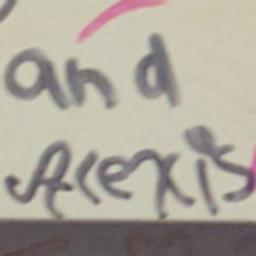 and
Alexis